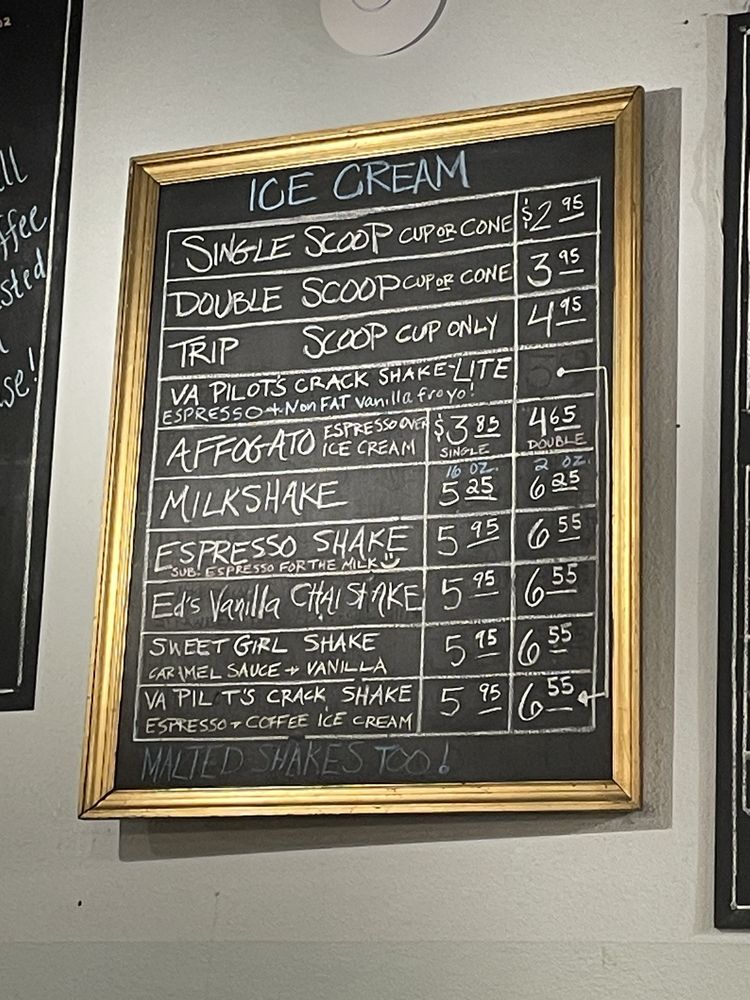 02
ll
ffee
sted
se!
ICE CREAM
SINGLE SCOOP CUP OR CONE $2 95
DOUBLE SCOOP CUP OR CONE 3 95
TRIP SCOOP CUP ONLY 4 95
VA PILOT'S CRACK SHAKE-LITE
ESPRESSO + Non FAT vanilla froyo!
AFFOGATO ESPRESSO OVER ICE CREAM $3 85 SINGLE 4 65 DOUBLE
16 OZ. 2 OZ.
MILKSHAKE 5 25 6 25
ESPRESSO SHAKE 5 95 6 55
SUB. ESPRESSO FOR THE MILK
Ed's Vanilla CHAI SHAKE 5 95 6 55
SWEET GIRL SHAKE 5 95 6 55
CARAMEL SAUCE + VANILLA
VA PIL T'S CRACK SHAKE 5 95 6 55
ESPRESSO + COFFEE ICE CREAM
MALTED SHAKES TOO!